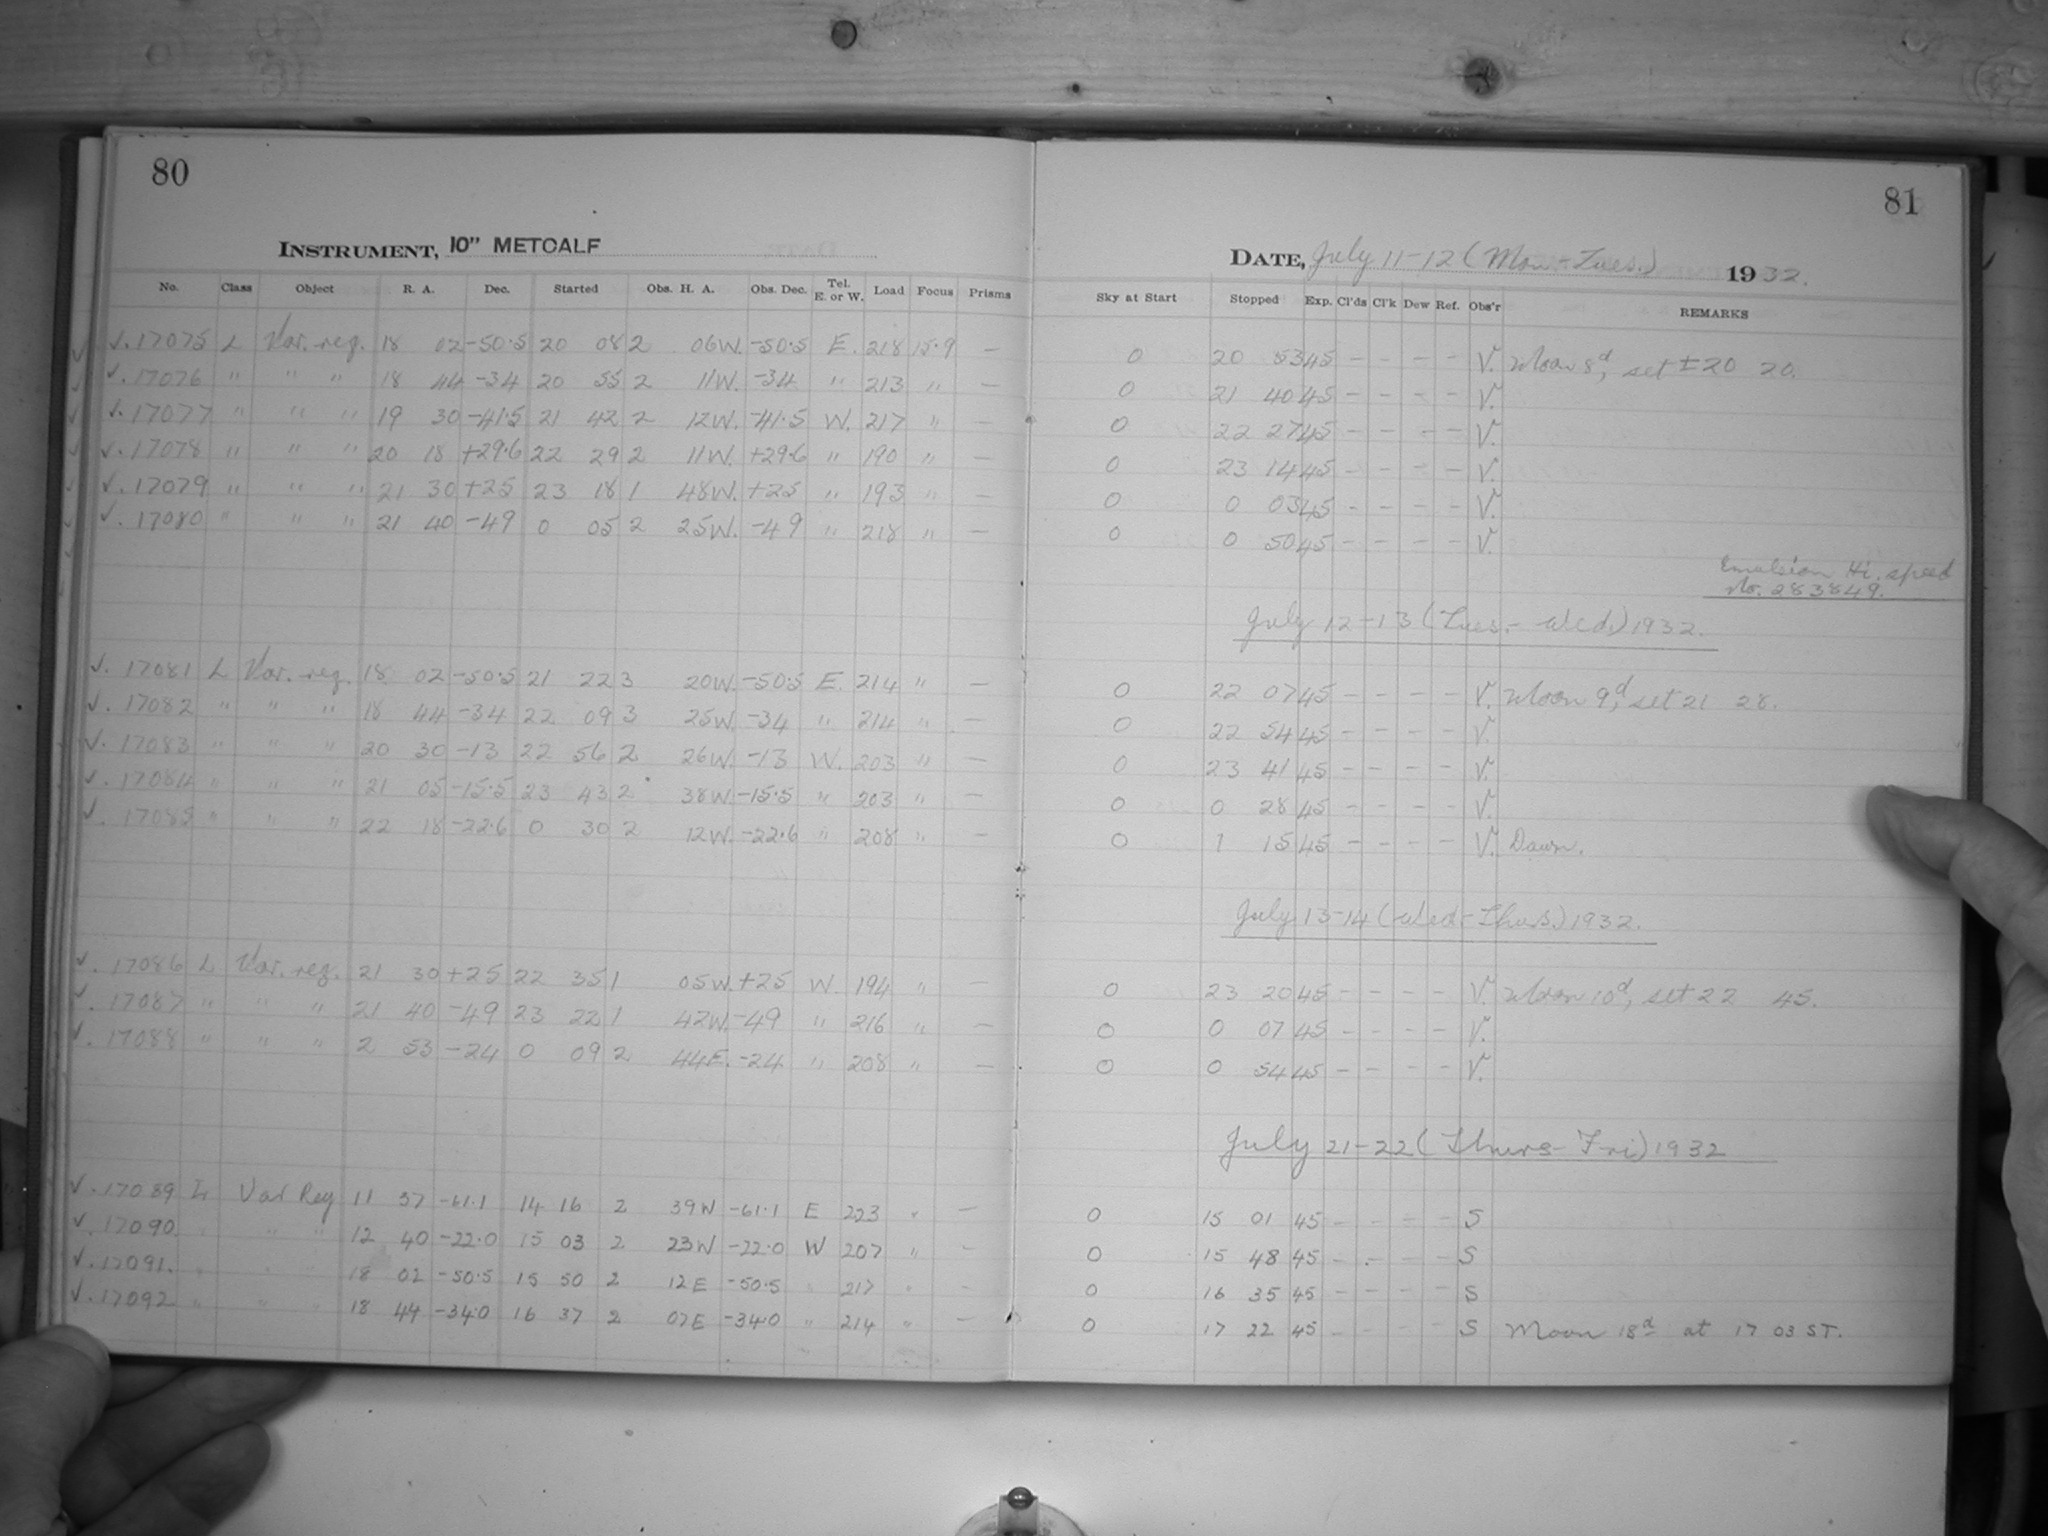 80
INSTRUMENT, 10" METCALF
No. Class Object R. A. Dec. Started Obs. H. A. Obs. Dec. Tel. E. or W. Load Focus Prisms
√. 17075 L Var. reg. 18 02 -50.5 20 08 2 06W. -50.5 E. 218 15.9 —
√. 17076 " " " 18 44 -34 20 55 2 11W. -34 " 213 " —
√. 17077 " " " 19 30 -41.5 21 42 2 12W. -41.5 W. 217 " —
√. 17078 " " " 20 18 +29.6 22 29 2 11W. +29.6 " 190 " —
√. 17079 " " " 21 30 +25 23 18 1 48W. +25 " 193 " —
√. 17080 " " " 21 40 -49 0 05 2 25W. -49 " 218 " —
√. 17081 L Var. reg. 18 02 -50.5 21 22 3 20W. -50.5 E. 214 " —
√. 17082 " " " 18 44 -34 22 09 3 25W. -34 " 214 " —
√. 17083 " " " 20 30 -13 22 56 2 26W. -13 W. 203 " —
√. 17084 " " " 21 05 -15.5 23 43 2 38W. -15.5 " 203 " —
√. 17085 " " " 22 18 -22.6 0 30 2 12W. -22.6 " 208 " —
√. 17086 L Var. reg. 21 30 +25 22 35 1 05W. +25 W. 194 " —
√. 17087 " " " 21 40 -49 23 22 1 42W. -49 " 216 " —
√. 17088 " " " 2 53 -24 0 09 2 44E. -24 " 208 " —
√. 17089 L Var Reg 11 37 -61.1 14 16 2 39W -61.1 E 223 " —
√. 17090 " " " 12 40 -22.0 15 03 2 23W -22.0 W 207 " —
√. 17091. " " " 18 02 -50.5 15 50 2 12E -50.5 " 217 " —
√. 17092 " " " 18 44 -34.0 16 37 2 07E -34.0 " 214 " —
81
DATE, July 11-12 (Mon-Tues.) 1932.
Sky at Start Stopped Exp. Cl'ds Cl'k Dew Ref. Obs'r REMARKS
0 20 53 45 - - - - V. Moon 8d, set ±20 20.
0 21 40 45 - - - - V.
0 22 27 45 - - - - V.
0 23 14 45 - - - - V.
0 0 03 45 - - - - V.
0 0 50 45 - - - - V.
Emulsion Hi. speed
No. 283849.
July 12-13 (Tues.- Wed.) 1932.
0 22 07 45 - - - - V. Moon 9d, set 21 28.
0 22 54 45 - - - - V.
0 23 41 45 - - - - V.
0 0 28 45 - - - - V.
0 1 15 45 - - - - V. Dawn.
July 13-14 (Wed.-Thurs.) 1932.
0 23 20 45 - - - - V. Moon 10d, set 22 45.
0 0 07 45 - - - - V.
0 0 54 45 - - - - V.
July 21-22 (Thurs-Fri) 1932
0 15 01 45 - - - - S
0 15 48 45 - - - - S
0 16 35 45 - - - - S
0 17 22 45 - - - - S Moon 18d at 17 03 ST.